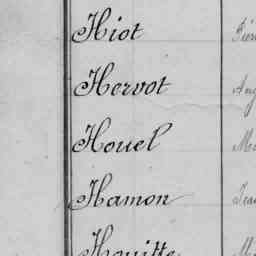 Hiot
Hervot
Houel
Hamon
Houitte